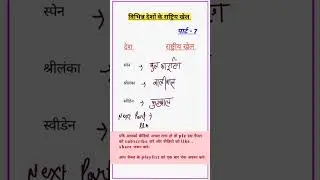 स्पेन
श्रीलंका
स्वीडेन
विभिन्न देशों के राष्ट्रिय खेल
पार्ट - 7
देश राष्ट्रीय खेल
स्पेन →
श्रीलंका → वालीबाल
स्वीडेन → फुटबाल
Next Part →
यदि आपको वीडियो अच्छा लगा हो तो plz इस चैनल
को subscribe करें और वीडियो को like ,
share जरूर करें।
आप चैनल के playlist को एक बार चेक जरूर करें
Next Part